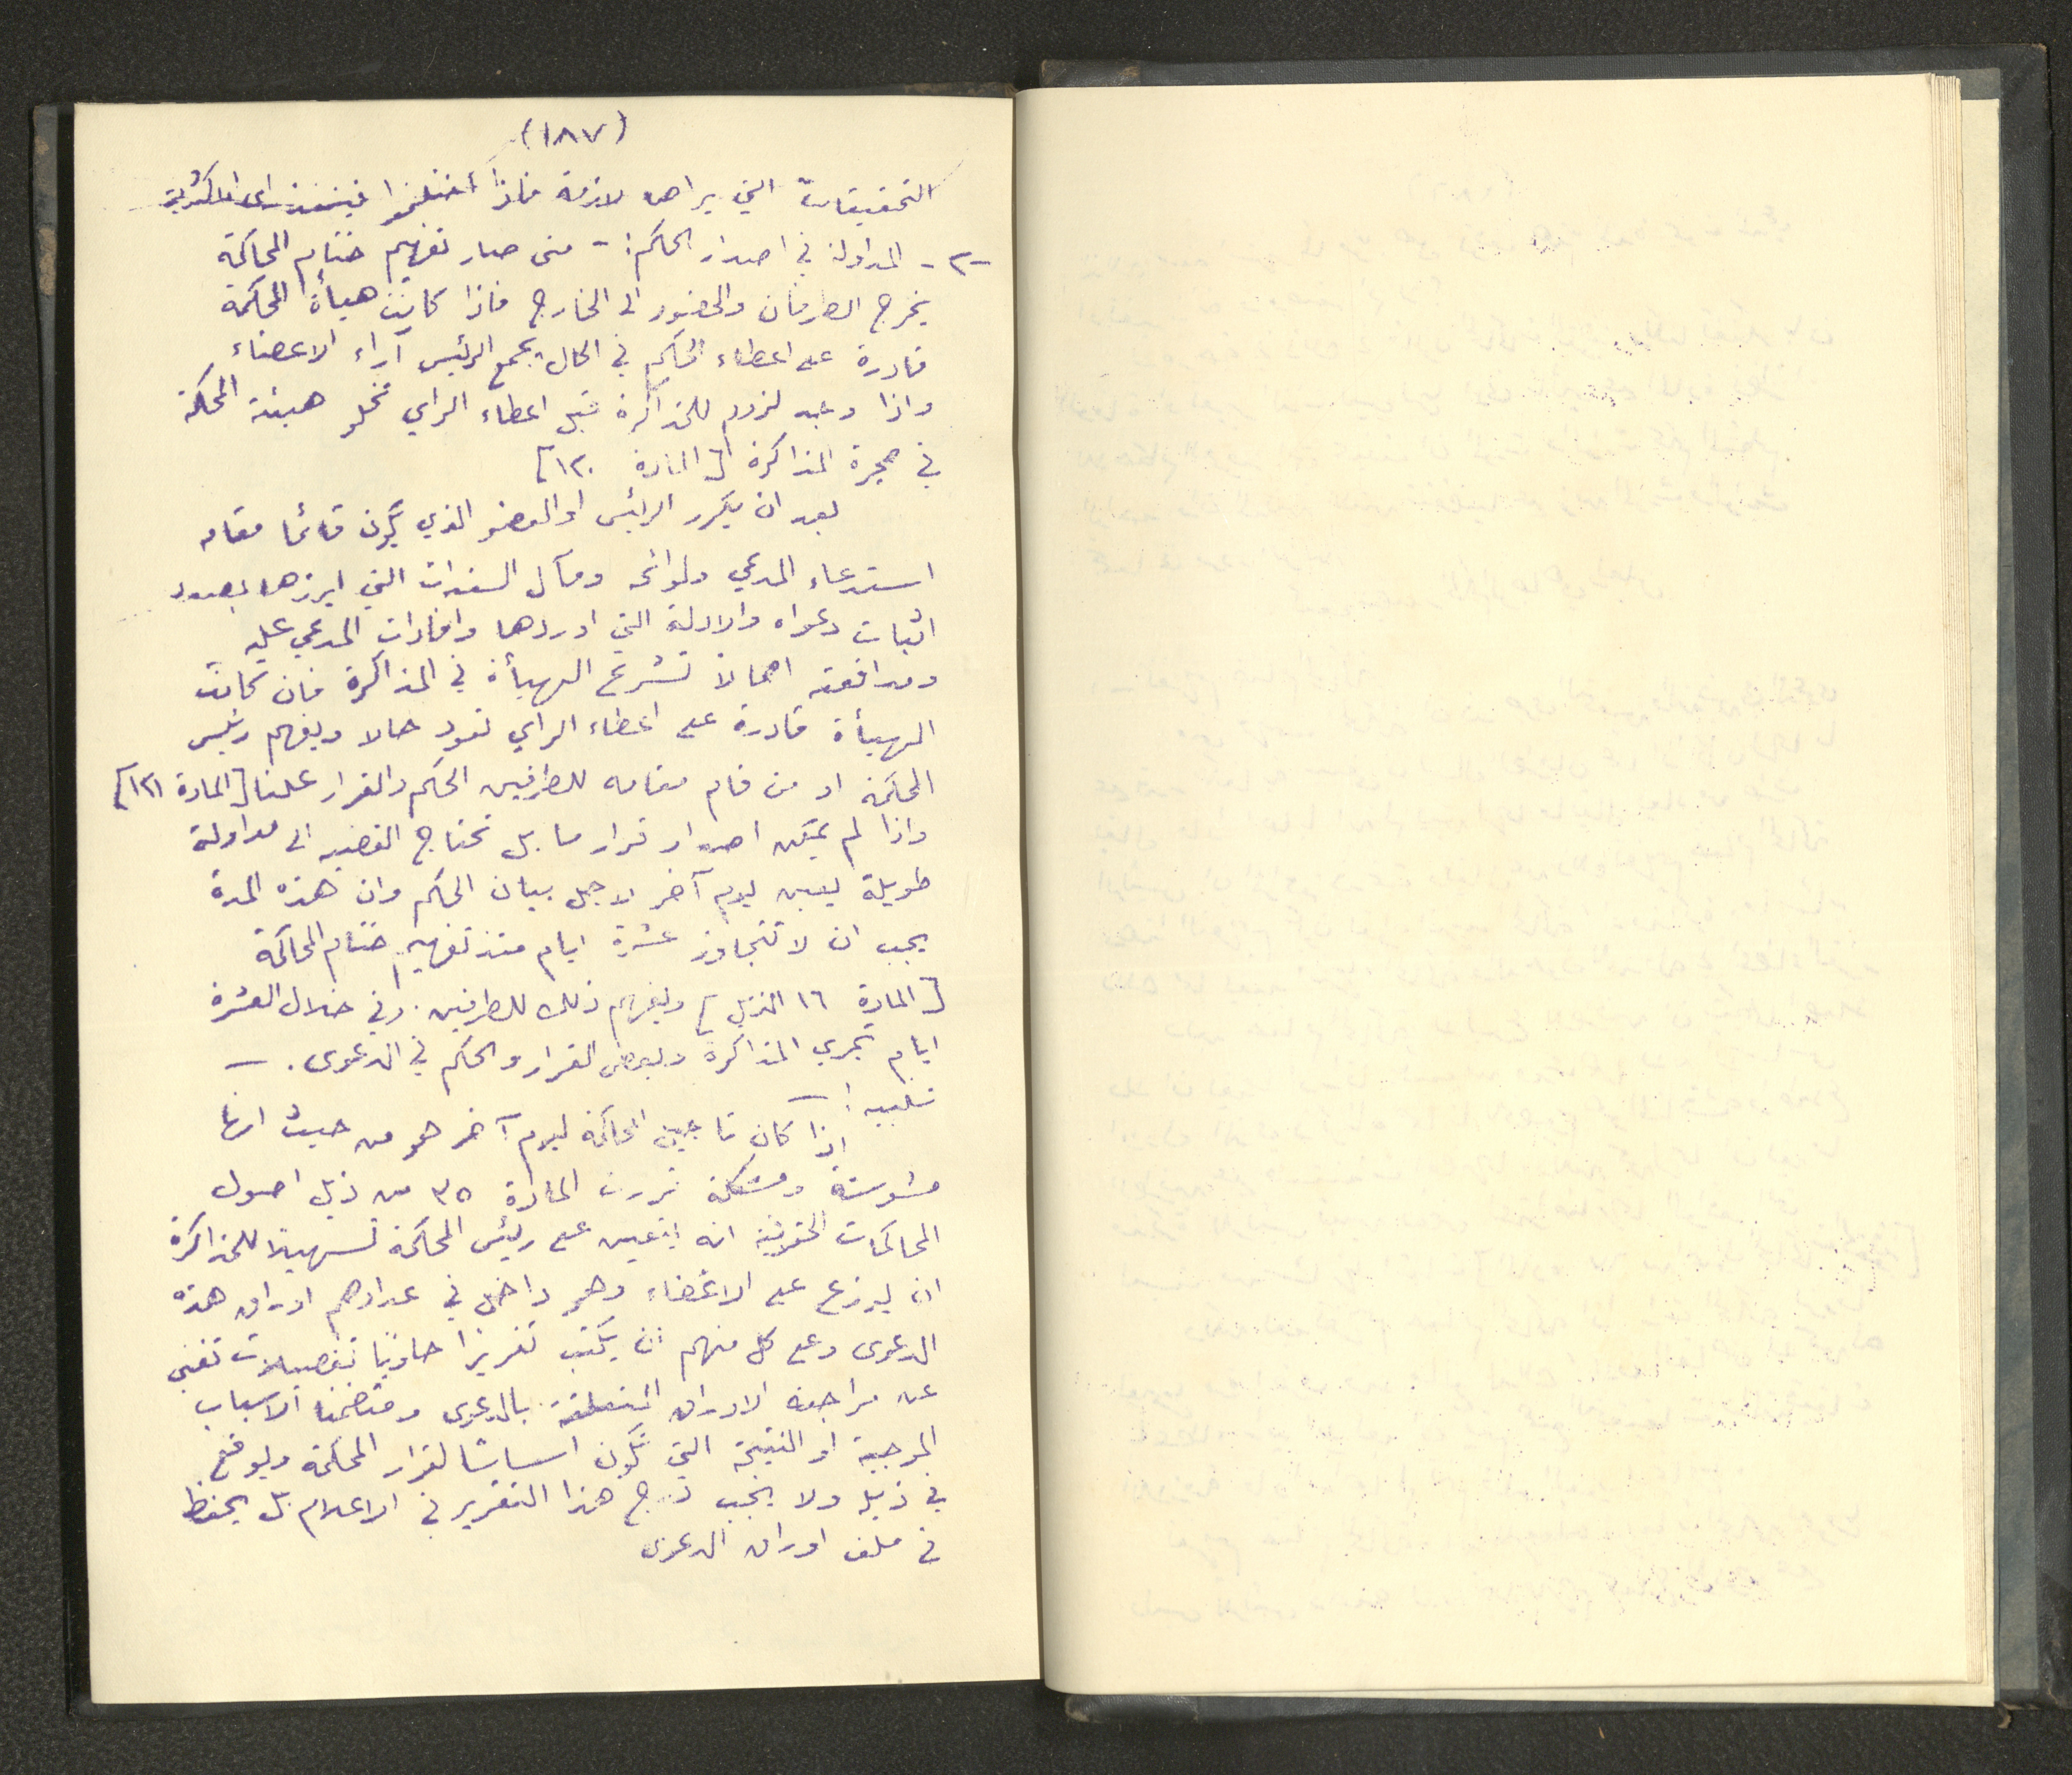 (١٨٧)
التحقيقات التي يراها لازمة فاذا اختلفوا فينفذ راي الاكثرية
-٢- المداولة في اصدار الحكم :- متى صار تفهيم ختام المحاكمة
يخرج الطرفان والحضور الى الخارج فاذا كانت هيأة المحكمة
قادرة على اعطاء الحكم في الحال يجمع الرئيس آراء الاعضاء
واذا وجد لزوم للمذاكرة قبل اعطاء الراي تخلو هيئة المحكمة
في حجرة المذاكرة [المادة ١٢٠]
بعد ان يكرر الرئيس او العضو الذي يكون قائما مقامه
استدعاء المدعي ولوائحه ومآل السندات التي ابرزها بصدد
اثبات دعواه والادلة التي اوردها وافادات المدعي عليه
ومدافعته اجمالا تشرع الهيأة في المذاكرة فان كانت
الهيأة قادرة على اعطاء الراي تعود حالا ويفهم رئيس
المحكمة او من قام مقامه للطرفين الحكم والقرار علنا [المادة ١٢١]
واذا لم يمكن اصدار قرار ما بل تحتاج القضيه الى مداولة
طويلة يعين ليوم آخر لاجل بيان الحكم وان هذه المدة
يجب ان لا تتجاوز عشرة ايام منذ تفهيم ختام المحاكمة
[المادة ١٦ الذيل] ويفهم ذلك للطرفين. وفي خلال العشرة
ايام تجري المذاكرة ويعطى القرار والحكم في الدعوى. —
تنبيه :—
اذا كان تاجيل المحاكمة ليوم آخر هو من حيث انها
مشوشة ومشكلة قررت المادة ٣٥ من ذيل اصول
المحاكمات الحقوقية انه يتعين على رئيس المحكمة تسهيلا للمذاكرة
ان يوزع على الاعضاء وهو داخل في عدادهم اوراق هذه
الدعوى وعلى كل منهم ان يكتب تقريرا حاويا تفصيلات تغني
عن مراجعة الاوراق المتعلقة بالدعوى ومتضمنا الاسباب
الموجبة او النتيجة التي تكون اساسا لقرار المحكمة ويوقع
في ذيله ولا يجب درج هذا التقرير في الاعلام بل يحفظ
في ملف اوراق الدعوى